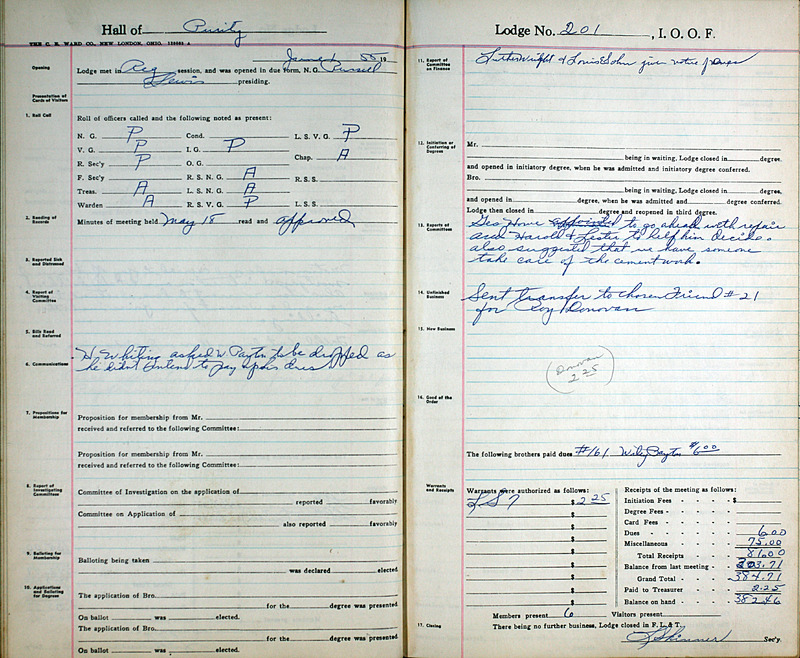 Hall of Purity
THE C. E. WARD CO., NEW LONDON, OHIO.
June 1 55 19
Opening
Lodge met in Reg session, and was opened in due form, N. G. Russell
Lewis presiding.
Presentation of Cards of Visitors
1. Roll Call
Roll of officers called and the following noted as present:
N. G. P Cond. L. S. V. G. P
V. G. P I. G. P Chap. A
R. Sec'y P O. G.
F. Sec'y R. S. N. G. A R. S. S.
Treas. A L. S. N. G. A
Warden A R. S. V. G. P L. S. S.
2. Reading of Records
Minutes of meeting held May 18 read and approved
3. Reported Sick and Distressed
4. Report of Visiting Committee
5. Bills Read and Referred
6. Communications
H. Whiting asked W. Payton to be dropped as
he didn't intend to pay up his dues
7. Propositions for Membership
Proposition for membership from Mr.
received and referred to the following Committee:
Proposition for membership from Mr.
received and referred to the following Committee:
8. Report of Investigating Committees
Committee of Investigation on the application of
reported favorably
Committee on Application of
also reported favorably
9. Balloting for Membership
Balloting being taken
was declared elected.
10. Applications and Balloting for Degrees
The application of Bro.
for the degree was presented.
On ballot was elected.
The application of Bro.
for the degree was presented
On ballot was elected.
Lodge No. 201, I. O. O. F.
11. Report of Committee on Finance
Luther Wright & Louis John given notice of Dues
12. Initiation or Conferring of Degrees
Mr.
being in waiting. Lodge closed in degree,
and opened in initiatory degree, when he was admitted and initiatory degree conferred.
Bro.
being in waiting. Lodge closed in degree,
and opened in degree, when he was admitted and degree conferred.
Lodge then closed in degree and reopened in third degree.
13. Reports of Committees
Geo Howe appointed to go ahead with repair
and Harold & Lester to help him decide.
also suggested that we have someone
take care of the cement work.
14. Unfinished Business
Sent transfer to chosen Friend #21
for Roy Donovan
15. New Business
Donovan
2 25
16. Good of the Order
The following brothers paid dues #161 Wiley Payton $6.00
Warrants and Receipts
Warrants were authorized as follows:
$ 2 25
Receipts of the meeting as follows:
Initiation Fees - - - $
Degree Fees - - - -
Card Fees - - - -
Dues - - - - 6.00
Miscellaneous - - - 75.00
Total Receipts 81.00
Balance from last meeting - 303.71
Grand Total - - - 384.71
Paid to Treasurer - - 2.25
Balance on hand - - - 382.46
Members present 6 Visitors present
17. Closing
There being no further business, Lodge closed in F., L. & T.
L Skinner Sec'y.